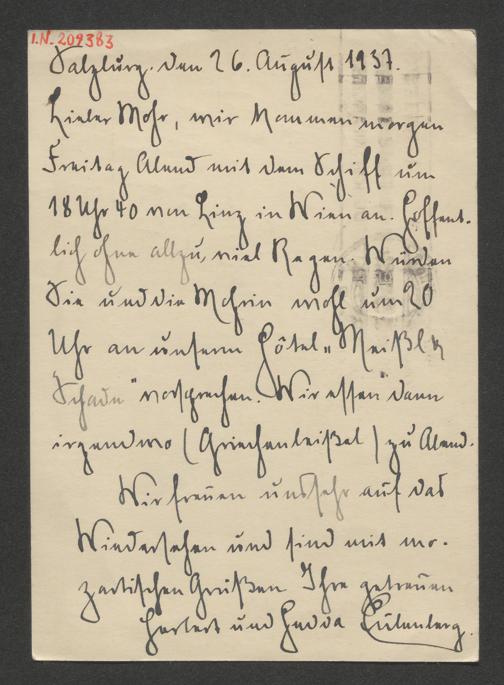 I.N. 209383
Salzburg. den 26. August 1937.
Lieber Mohr, wir kommen morgen
Freitag Abend mit dem Schiff um
18 Uhr 40 von Linz in Wien an. Hoffent-
lich ohne allzu viel Regen. Würden
Sie und die Mohrin wohl um 20
Uhr an unserm Hôtel „Meißl &
Schadn" vorsprechen. Wir essen dann
irgendwo (Griechenbeißel) zu Abend.
Wir freuen uns sehr auf das
Wiedersehen und sind mit mo-
zartischen Grüßen Ihre getreuen
Herbert und Hedda Eulenberg.